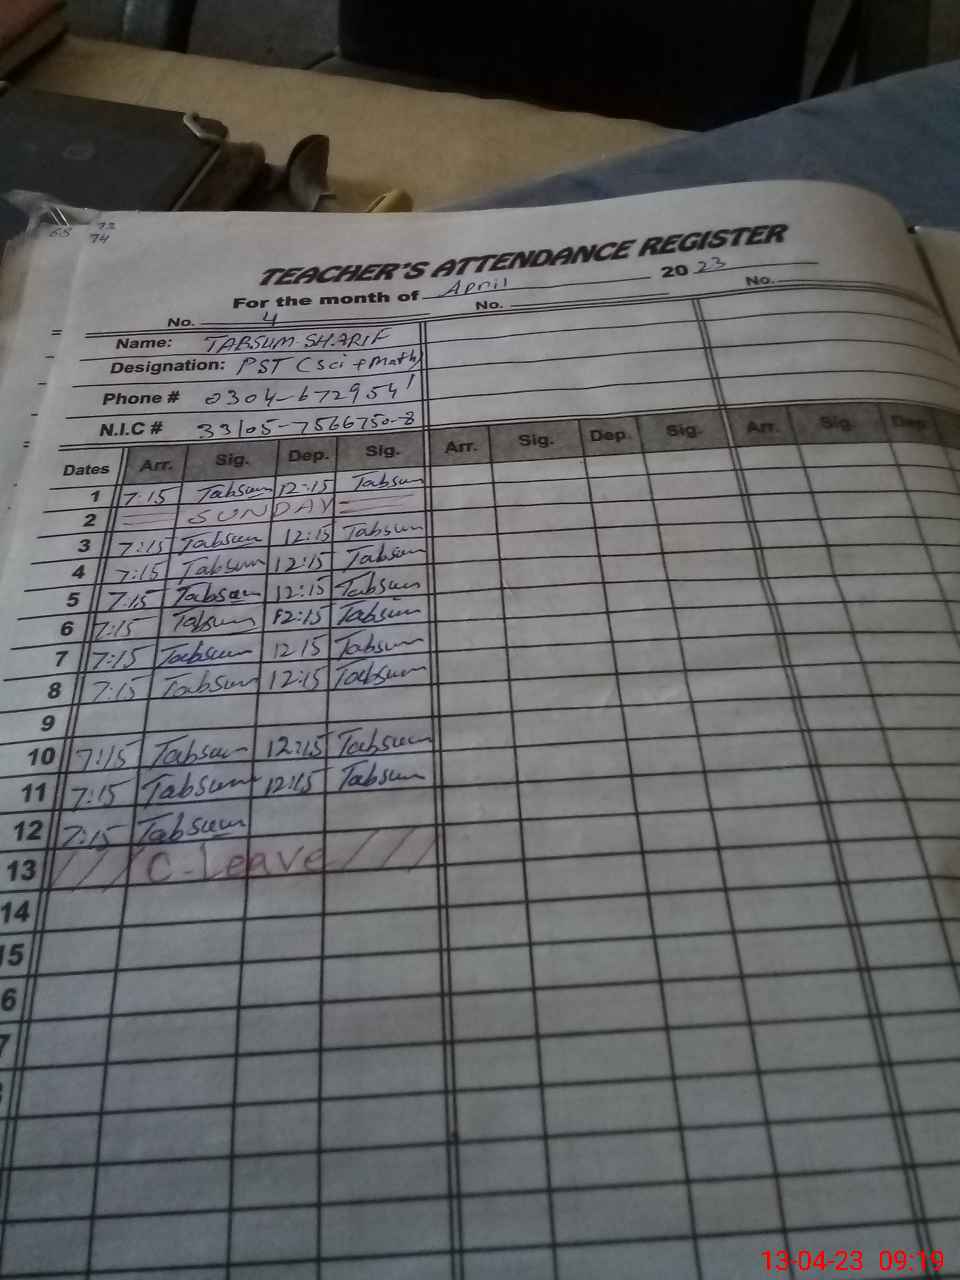 65 73
74
TEACHER'S ATTENDANCE REGISTER
For the month of April 2023
No. 4 No. No.
Name: TABSUM SHARIF
Designation: PST (Sci + Math)
Phone # 0304-6729541
N.I.C # 33105-7566750-8
Dates Arr. Sig. Dep. Sig. Arr. Sig. Dep. Sig. Arr. Sig. Dep
1 7:15 Tabsum 12:15 Tabsum
2 SUNDAY
3 7:15 Tabsum 12:15 Tabsum
4 7:15 Tabsum 12:15 Tabsum
5 7:15 Tabsum 12:15 Tabsum
6 7:15 Tabsum 12:15 Tabsum
7 7:15 Tabsum 12 15 Tabsum
8 7:15 Tabsum 12:15 Tabsum
9
10 7:15 Tabsum 12:15 Tabsum
11 7:15 Tabsum 12:15 Tabsum
12 7:15 Tabsum
13 C-Leave
14
15
6
7
13-04-23 09:19